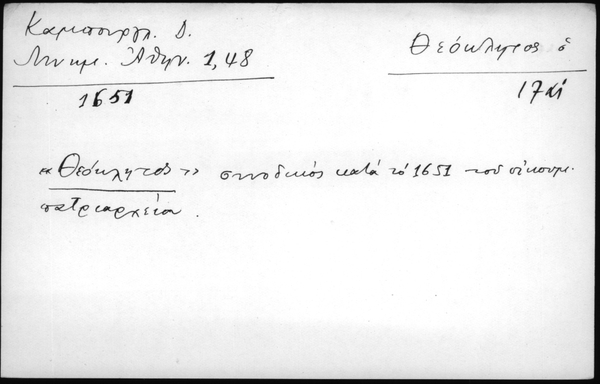 Καμπουργλ. Δ.
Μνημ. Ἀθην. 1,48
1651
Θεόκλητος ὁ
17 αἰ
«Θεόκλητος» συνοδικός κατά τό 1651 τοῦ οἰκουμ.
πατριαρχείου.